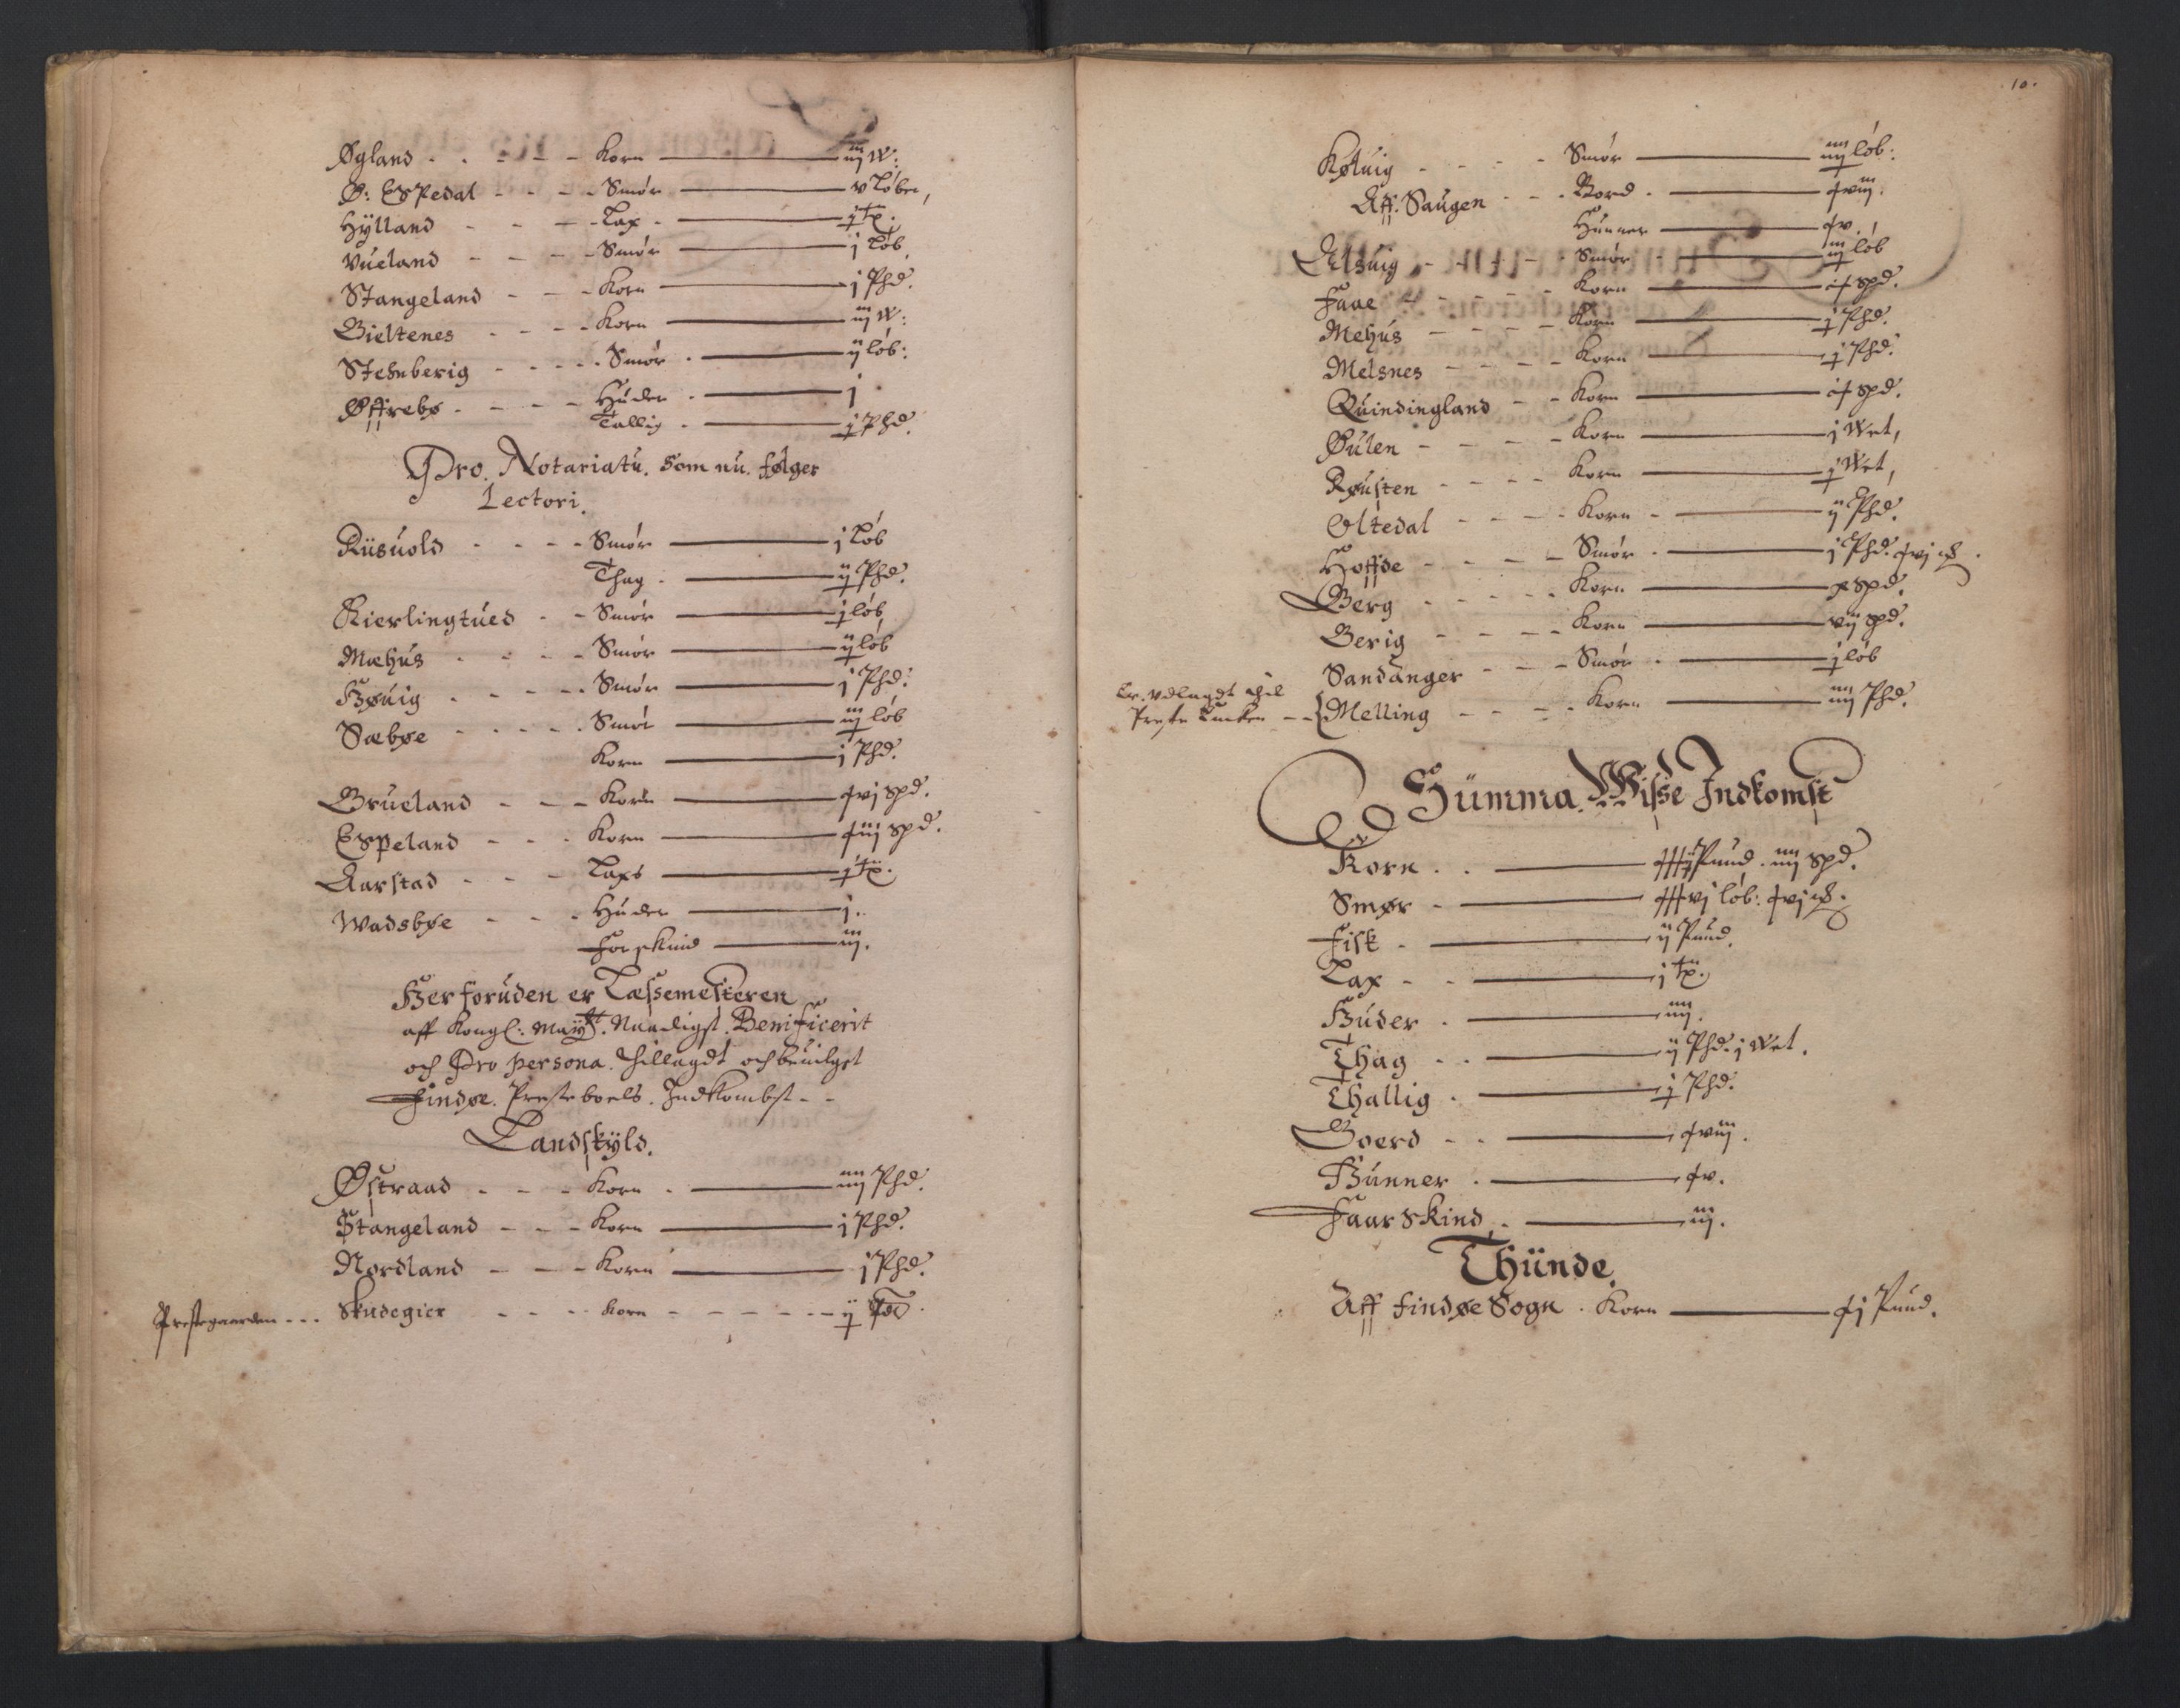 Øgland - - - - - Korn — iij W:
Ø: Espedal - - - - Smør — v Løber,
Hÿlland - - - Lax - — j tø.
Vueland - - - - Smør — j Løb,
Stangeland - - - Korn — j Phd.
Gieltenes - - - - Korn — iij W:
Stehnberig - - - - - Smør - — ij løb:
Øffrebø - - - - Huder - — j
Tallig - — j Phd.
Pro. Notariatu. Som nu. følger
Lectori.
Riisuold - - - - Smør — j Løb
Thag - — ij Phd.
Kierlingtued - - Smør — j løb,
Mæhus - - - - Smør — ij løb
Høuig - - - - - Smør — j Phd:
Sæbøe - - - - - Smør — iij løb
Korn — j Phd.
Grueland - - - Korn — xvj spd.
Espeland - - - Korn — xiij spd.
Aarstad - - - Laxs — j tø.
Wadsbøe - - - Huder — j.
Forskind — iij.
Her foruden er Læssemesteren
aff Kongl: Maÿtt. Naadigst. Benificerit
och Pro persona. thillagdt och beuilget
Findøe. Presteboels. Indkombst - -
Landskÿld.
Østraad - - - Korn - — iiij Phd.
Stangeland - - - Korn — j Phd.
Nordland - - - Korn — j Phd.
Prestegaarden - - - Skudegier - - - - Korn - - - - - - ij Pd
10.
Køluig - - - - Smør — iiij løb:
Aff. Saugen - - - Bord - — xviij.
Hunner — xv.
Elsuig - - - - - Smør - — iij løb
Faae - - - - - Korn — ix spd.
Mehus - - - - Korn — j Phd.
Melsnes - - - - Korn — j Phd.
Quindingland - - Korn — ix spd.
Øulen - - - - Korn — j Wet,
Røusten - - - - Korn — j Wet,
Oltedal - - - - Korn - — ij Phd.
Hoffde - - - - Smør - — j Phd. xvj
Berg - - - - - Korn — x spd.
Berig - - - - Korn — vij spd.
Sandanger - - - Smør - — j løb
Er. Vdlagdt thil
Preste Encken - - {Melling - - - - Korn — iiij Phd.
Summa. Wisse Indkomst
Korn - - — Pund. iiij spd.
Smør - — vj løb: xvj
Fisk - — ij Pund.
Lax - - — j tø.
Huder - — iiij.
Thag - - — ij Phd. j Wet.
Thallig - — j Phd.
Boerd - - — xviij.
Hunner - — xv.
Faarskind - — iij.
Thiinde.
Aff Findøe Sogn - Korn — xj Pund.